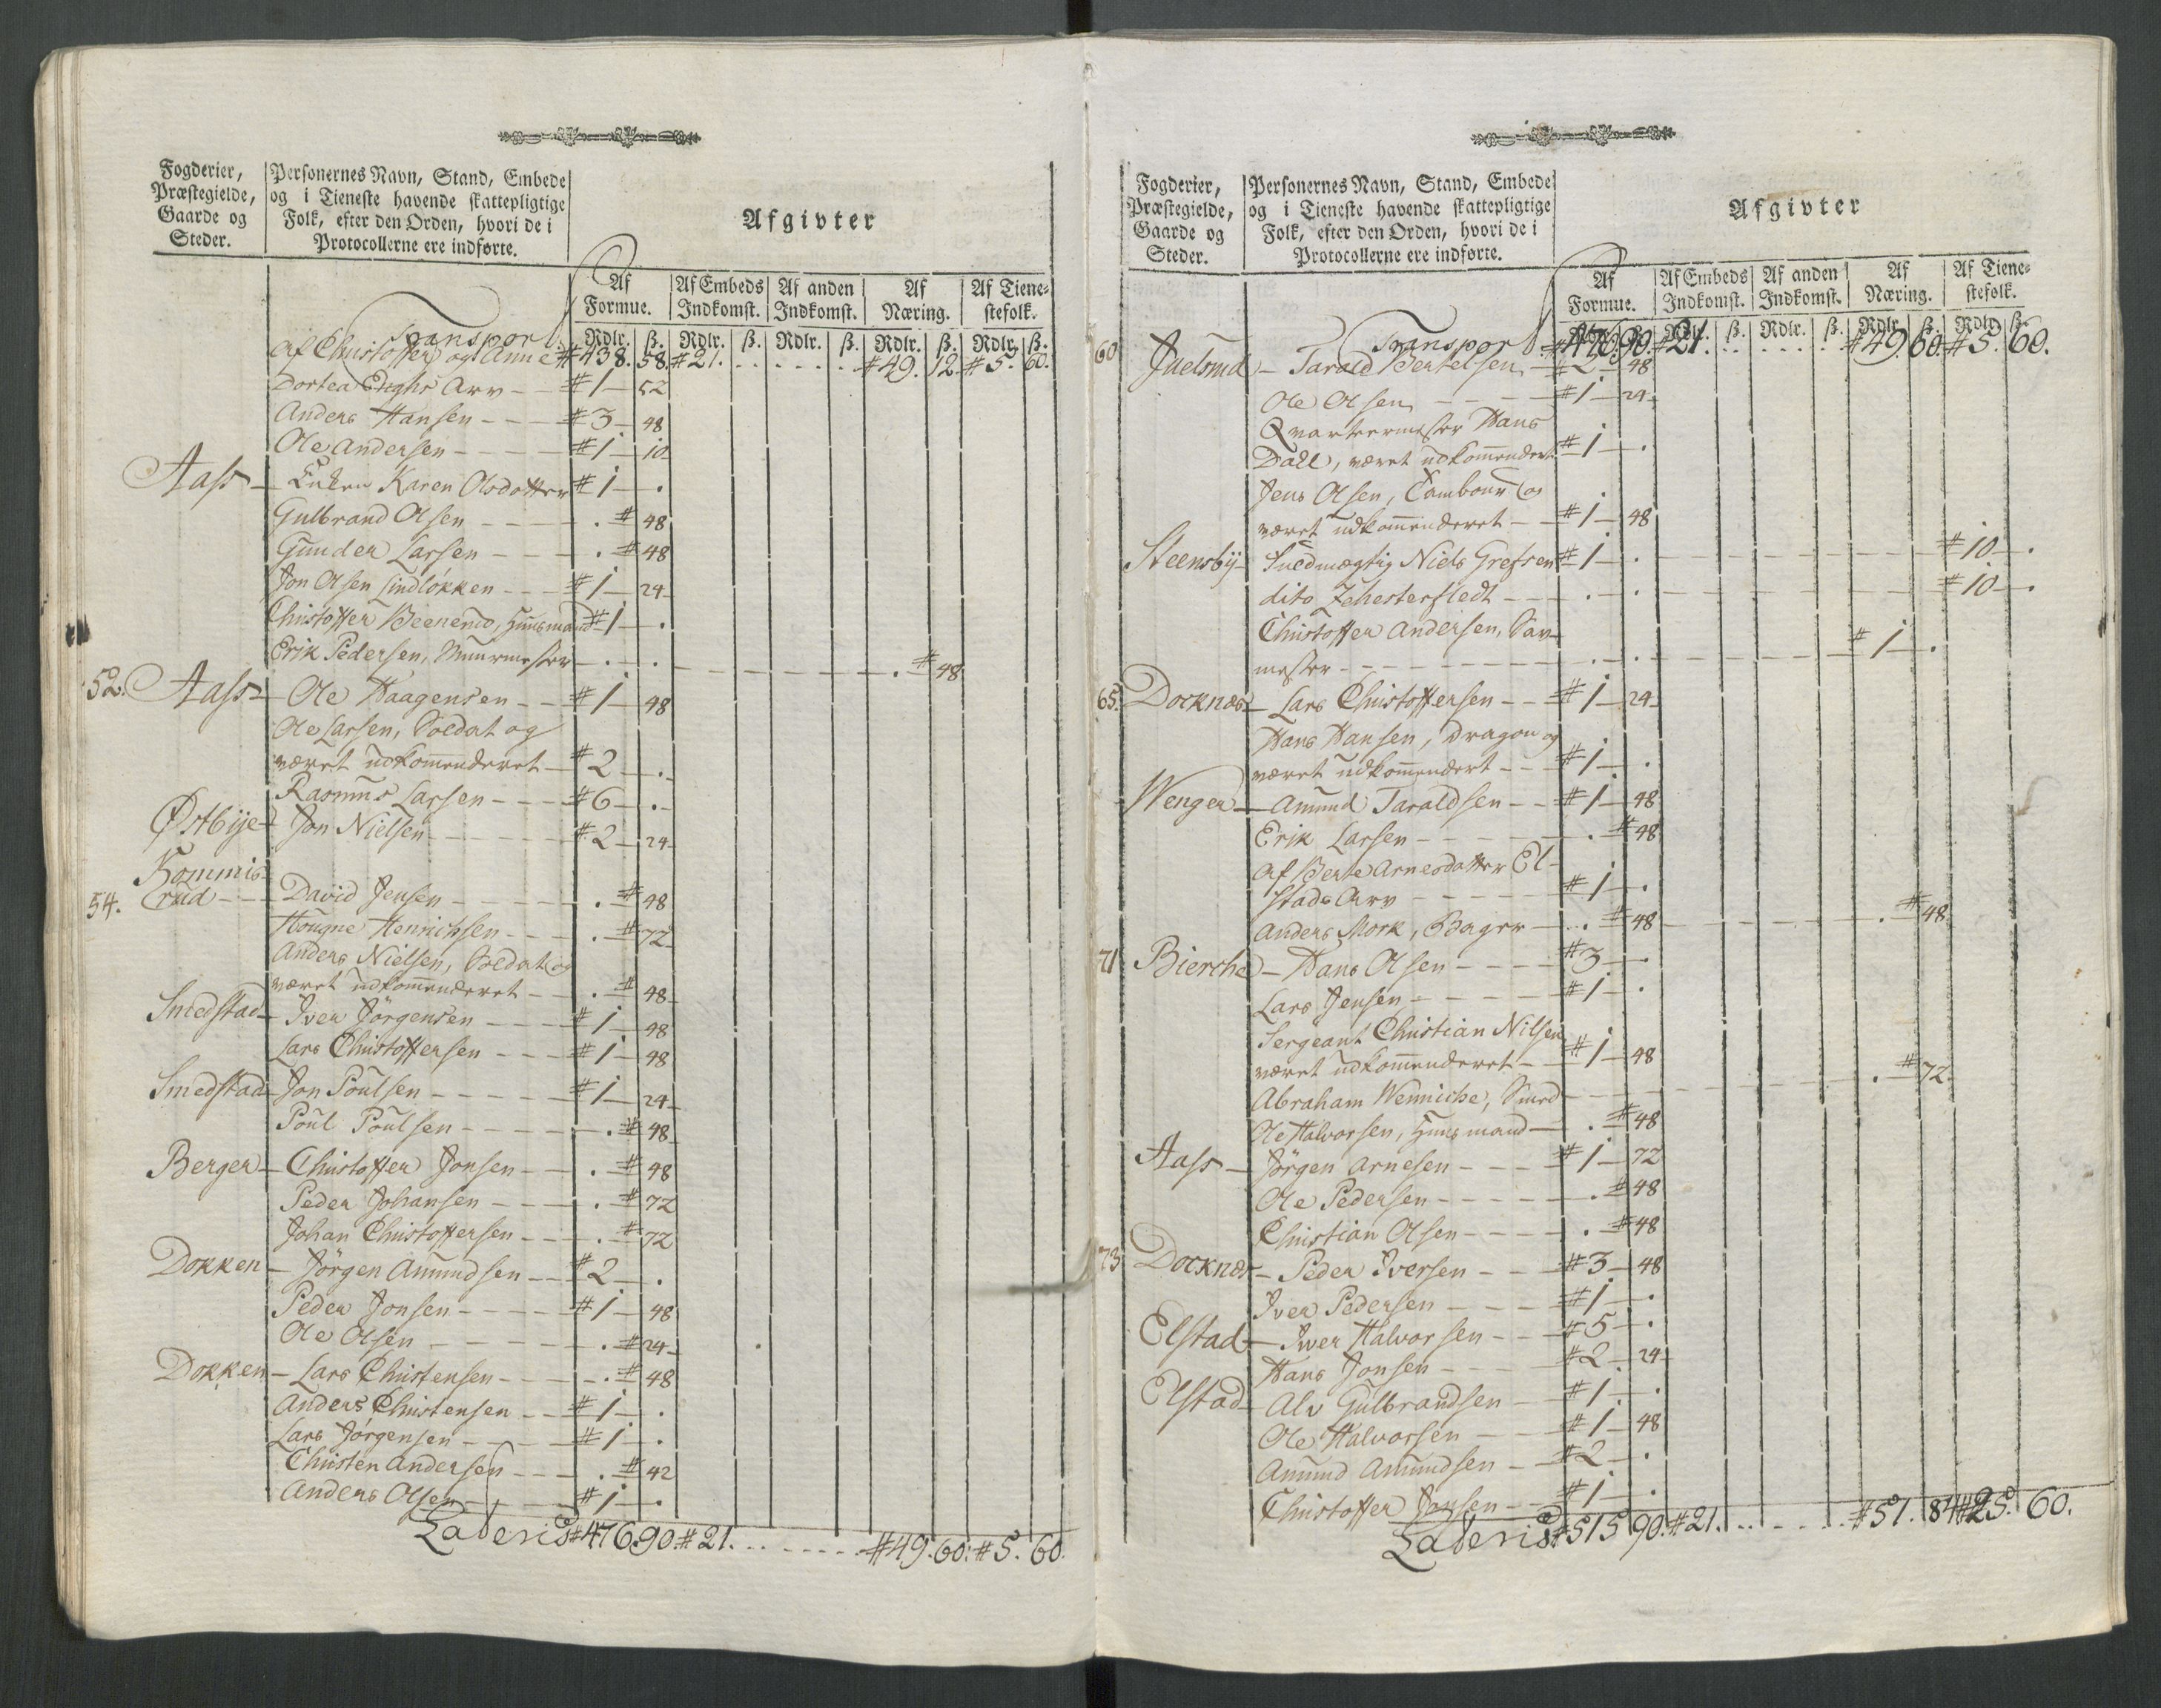 Fogderier,
Præstegielde,
Gaarde og
Steder.
Personernes Navn, Stand, Embede
og i Tieneste havende skattepligtige
Folk, efter den Orden, hvori de i
Protocollerne ere indførte.
Afgivter
Af Formue. Af Embeds Indkomst. Af anden Indkomst. Af Næring. Af Tienestefolk.
Rdlr. ß. Rdlr. ß. Rdlr. ß. Rdlr. ß. Rdlr. ß.
Transport
Af Christoffer og Anne # 438. 58. # 21. . . . . . . # 49. 12. # 5. 60.
Dortea Enghs Arv - - # 1 - 52
Anders Hansen - - - # 3 - 48
Ole Andersen - - - - # 1 - 10
Aass - Enken Karen Olsdatter # 1 - .
Gulbrand Olsen - - - - . # 48
Gunder Larsen - - - . # 48
Jon Olsen Lindløkken - - - # 1 - 24
Christoffer Beenend, Huusmand # 1 - .
Erik Pedersen, Muurmester - . - . - - - - - - . # 48
52. Aass - Ole Haagensen - - # 1 - 48
Ole Larsen, Soldat og
været udkom̄enderet - # 2 - .
Rasmus Larsen - - - # 6 - .
Østbye - Jon Nielsen - - - - # 2 - 24
Kommis-
54. rud - - - David Jensen - - - - - . # 48
Hougne Henrichsen - - - . # 72
Anders Nielsen, Soldat og
været udkom̄enderet - - . # 48
Smedstad - Iver Jørgensen - - - # 1 - 48
Lars Christoffersen - - - # 1 - 48
Smedstad - Jon Poulsen - - - - - # 1 - 24
Poul Poulsen - - - - - . # 48
Berger - Christoffer Jonsen - - . # 48
Peder Johansen - - - . # 72
Johan Christoffersen - - - . # 72
Dokken - Jørgen Amundsen - - # 2 - .
Peder Jonsen - - - - # 1 - 48
Ole Olsen - - - - - . # 24
Dokken - Lars Christensen - - - - . # 48
Anders Christensen - - # 1 - .
Lars Jørgensen - - - - # 1 - .
Christen Andersen - - - . # 42
Anders Olsen - - - - # 1 - .
Lateris # 476. 90. # 21. . . . . . . # 49. 60. # 5. 60.
Fogderier,
Præstegielde,
Gaarde og
Steder.
Personernes Navn, Stand, Embede
og i Tieneste havende skattepligtige
Folk, efter den Orden, hvori de i
Protocollerne ere indførte.
Afgivter
Af Formue. Af Embeds Indkomst. Af anden Indkomst. Af Næring. Af Tienestefolk.
Rdlr. ß. Rdlr. ß. Rdlr. ß. Rdlr. ß. Rdlr. ß.
Transport # 476. 90. # 21. . . . . . . # 49. 60. # 5. 60.
60 Jaelsrud - Tarald Bertelsen - # 2 - 48
Ole Olsen - - - - # 1 - 24
Qvarteermester Hans
Dall, været udkom̄endert # 1 - .
Jens Olsen, Tambour og
været udkom̄enderet - # 1 - 48
Steensby - Fuldmægtig Niels Grefsen # 1 - . - - - - - - # 10 - .
dito Zehesterfledt - - - . - . - - - - - - # 10 - .
Christoffer Andersen, Sav-
mester - - - - - - - . - . - - - - - # 1 - .
65. Docknæs - Lars Christoffersen - - # 1 - 24
Hans Hansen, Dragon og
været udkom̄endert - - - # 1 - .
Wenger - Amund Taraldsen - - # 1 - 48
Erik Larsen - - - - - . # 48
Af Berte Arnesdatter El-
stads Arv - - - - # 1 - .
Anders Mork, Bager - - . # 48 - - - - - . # 48.
71 Bierche - Hans Olsen - - - - # 3 - .
Lars Jensen - - - - # 1 - .
Sergeant Christian Nilsen
været udkom̄enderet - - # 1 - 48
Abraham Wennicke, Smed - - - - - - - . # 72.
Ole Halvorsen, Huusmand - . # 48
Aass - Jörgen Arnesen - - - # 1 - 72
Ole Pedersen - - - - - . # 48
Christian Olsen - - - - . # 48
73 Docknæs - Peder Iversen - - - # 3 - 48
Iver Pedersen - - - # 1 - .
Elstad - Iver Halvorsen - - # 5 - .
Hans Jonsen - - - - # 2 . 24
Elstad - Alv Gulbrandsen - # 1 - .
Ole Halvorsen - - - # 1 - 48
Amund Amundsen - # 2 - .
Christoffer Jonsen - - # 1 - .
Lateris # 515 90. # 21. . . . . . . # 51. 84 # 25. 60.